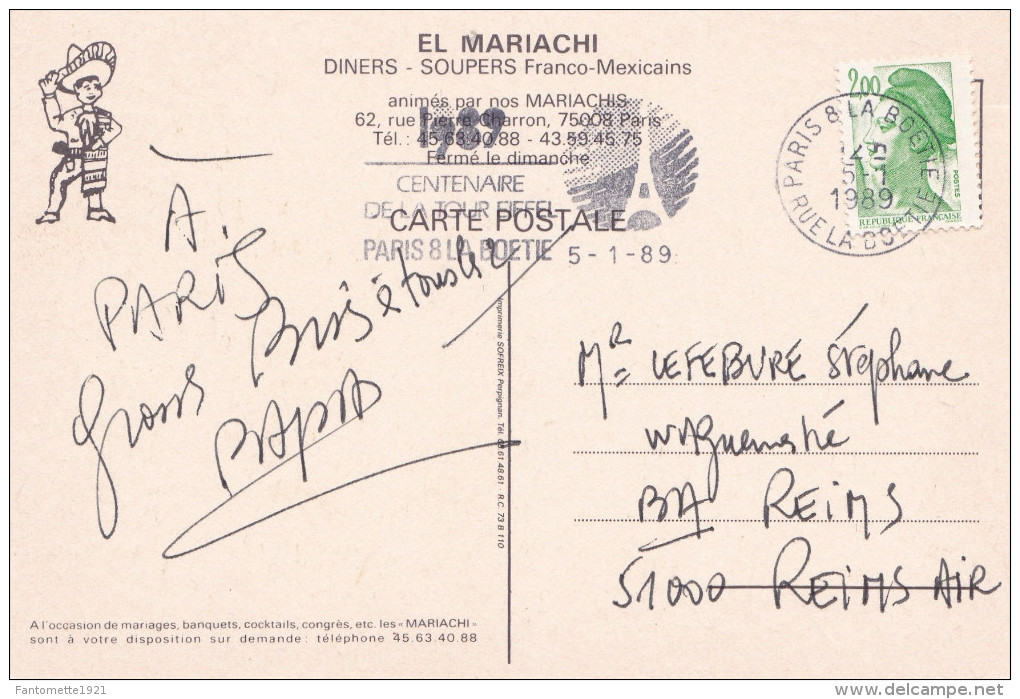 EL MARIACHI
DINERS - SOUPERS Franco-Mexicains
animés par nos MARIACHIS
62, rue Pierre Charron, 75008 Paris
Tél.: 45.63.40.88 - 43.59.45.75
Fermé le dimanche
1789
CENTENAIRE
DE LA TOUR EIFFEL
CARTE POSTALE
PARIS 8 LA BOETIE 5-1-89
2,00
POSTES
REPUBLIQUE FRANÇAISE
PARIS 8 LA BOETIE
5-1
1989
RUE LA BOETIE
A
PARIS
Bises à tous les 2
Gross
PAPA
Imprimerie SOFREIX Perpignan. Tél. 68.61.48.61 - R.C. 73 B 110
Mr LEFEBVRE Stéphane
BA REIMS
51000 REIMS AIR
A l'occasion de mariages, banquets, cocktails, congrès, etc. les «MARIACHI»
sont à votre disposition sur demande: téléphone 45.63.40.88
Fantomette1921
delcampe.net